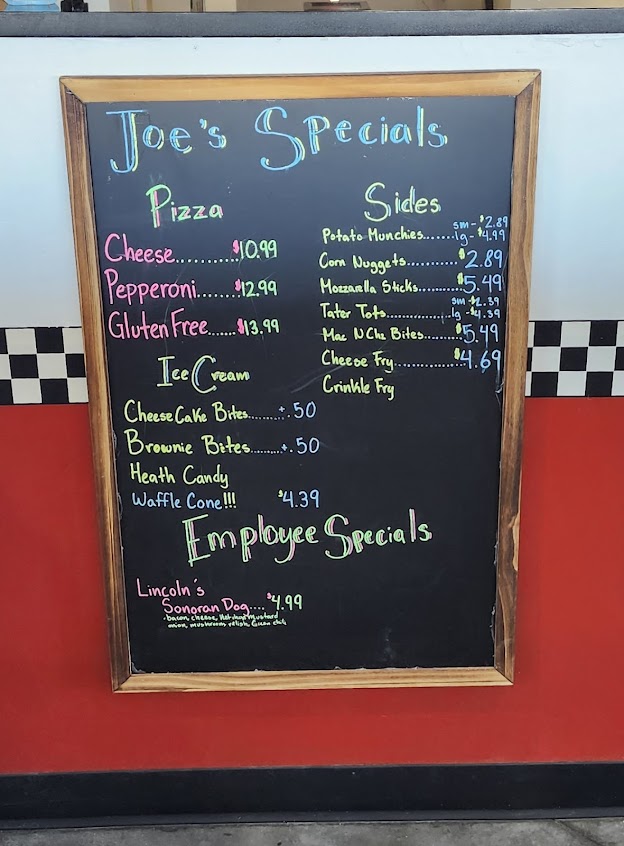 Joe's Specials
Pizza
Cheese........$10.99
Pepperoni......$12.99
Gluten Free.....$13.99
Ice Cream
Cheese Cake Bites......+.50
Brownie Bites........+.50
Heath Candy
Waffle Cone!!! $4.39
Sides
sm-$2.89
Potato Munchies......lg-$4.99
Corn Nuggets..........$2.89
Mozzarella Sticks........$5.49
sm-$2.39
Tater Tots...........lg-$4.39
Mac N Che Bites......$5.49
Cheese Fry..............$4.69
Crinkle Fry
Employee Specials
Lincoln's
Sonoran Dog....$4.99
-bacon, cheese, ketchup, mustard
onion, mushroom, relish, Green chili